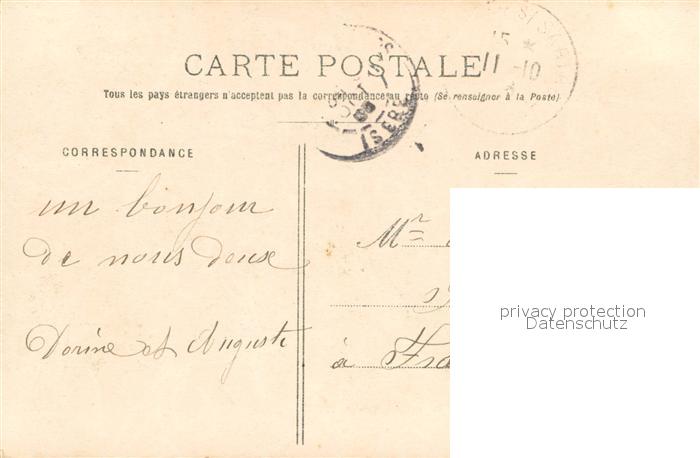 CARTE POSTALE
Tous les pays étrangers n'acceptent pas la correspondance au recto (Se renseigner à la Poste)
CORRESPONDANCE
ADRESSE
un bonjour
de nous deux
Dorine et Auguste
Mr
à Fra
ISERE
15 *
11 -10
*
privacy protection
Datenschutz